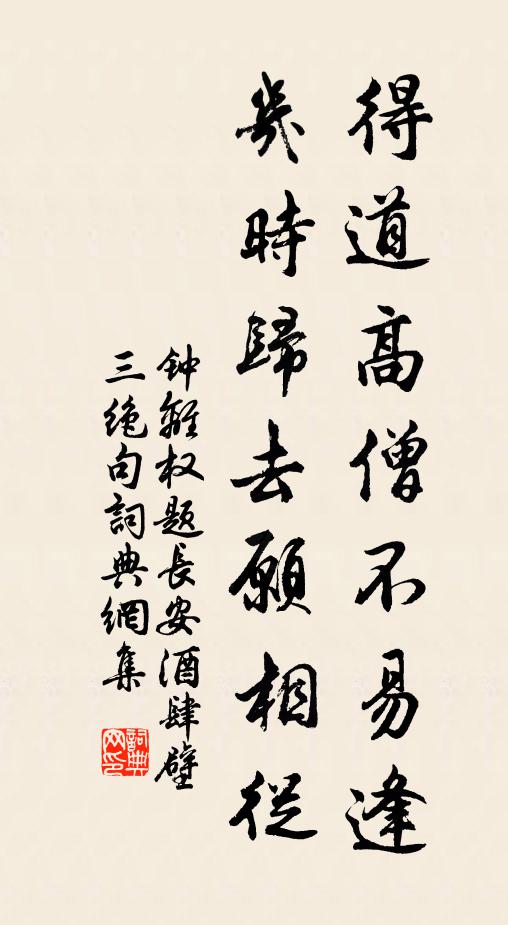 得道高僧不易逢
幾時歸去願相從
钟離权题長安酒肆壁
三绝句詞典網集
詞典网印